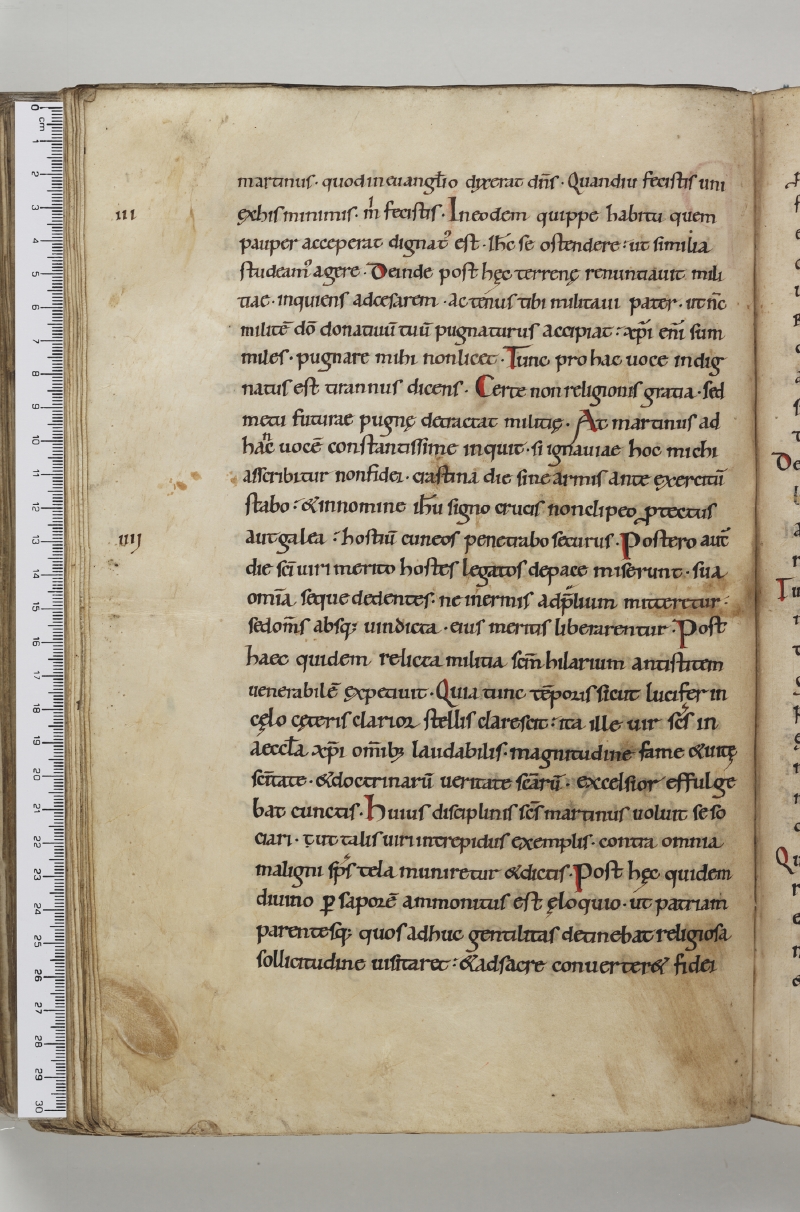 martinus· quod in euangl̅io dixerat dn̅s· Quandiu fecistis uni
iii
ex his minimis· m̍ fecistis· In eodem quippe habitu quem
pauper acceperat dignat᷒ est· ih̅c se ostendere: ut similia
studeam᷒ agere· Deinde post hęc terrenę renuntiauit mili
tiae· inquiens ad cesarem· actenus tibi militaui pater· ut nc̅
milite̅ do̅ donatiuu̅ tuu̅ pugnaturus accipiat: xp̅i eni̅ sum
miles· pugnare mihi non licet· Tunc pro hac uoce indig
natus est tirannus dicens· Certe non religionis gratia· sed
metu futurae pugnę detractat militię· At martinus ad
hanc uoce̅ constantissime inquit· si ignauiae hoc michi
asscribitur non fidei· crastina die sine armis ante exercitu̅
stabo: & in nomine ih̅u signo crucis non clipeo ꝓtectus
iiij
aut galea: hostiu̅ cuneos penetrabo securus· Postero aut̅
die sc̅i uiri merito hostes legatos de pace miserunt· sua
omi̅a seque dedentes· ne inermis ad p̅lium mitteretur·
sed om̅s absq; uindicta· eius meritis liberarentur· Post
haec quidem relicta militia sc̅m hilarium antistitem
uenerabile̅ expetiuit· Quia tunc te̅poris sicut lucifer in
cęlo cęteris clarior stellis clarescit: ita ille uir sc̅s in
aeccl̅a xp̅i omib; laudabilis· magnitudine fame & uitę
sc̅itate· & doctrinaru̅ ueritate sc̅aru̅· excelsior effulge
bat cunctis· Huius disciplinis sc̅s martinus uoluit se so
ciari· ut talis uiri intrepidus exemplis· contra omnia
maligni sp̅s tela muniretur & dictis· Post hęc quidem
diuino ꝑ sapore̅ ammonitus est ęloquio· ut patriam
parentesq; quos adhuc gentilitas detinebat religiosa
sollicitudine uisitaret: & ad sacre conuerter& fidei